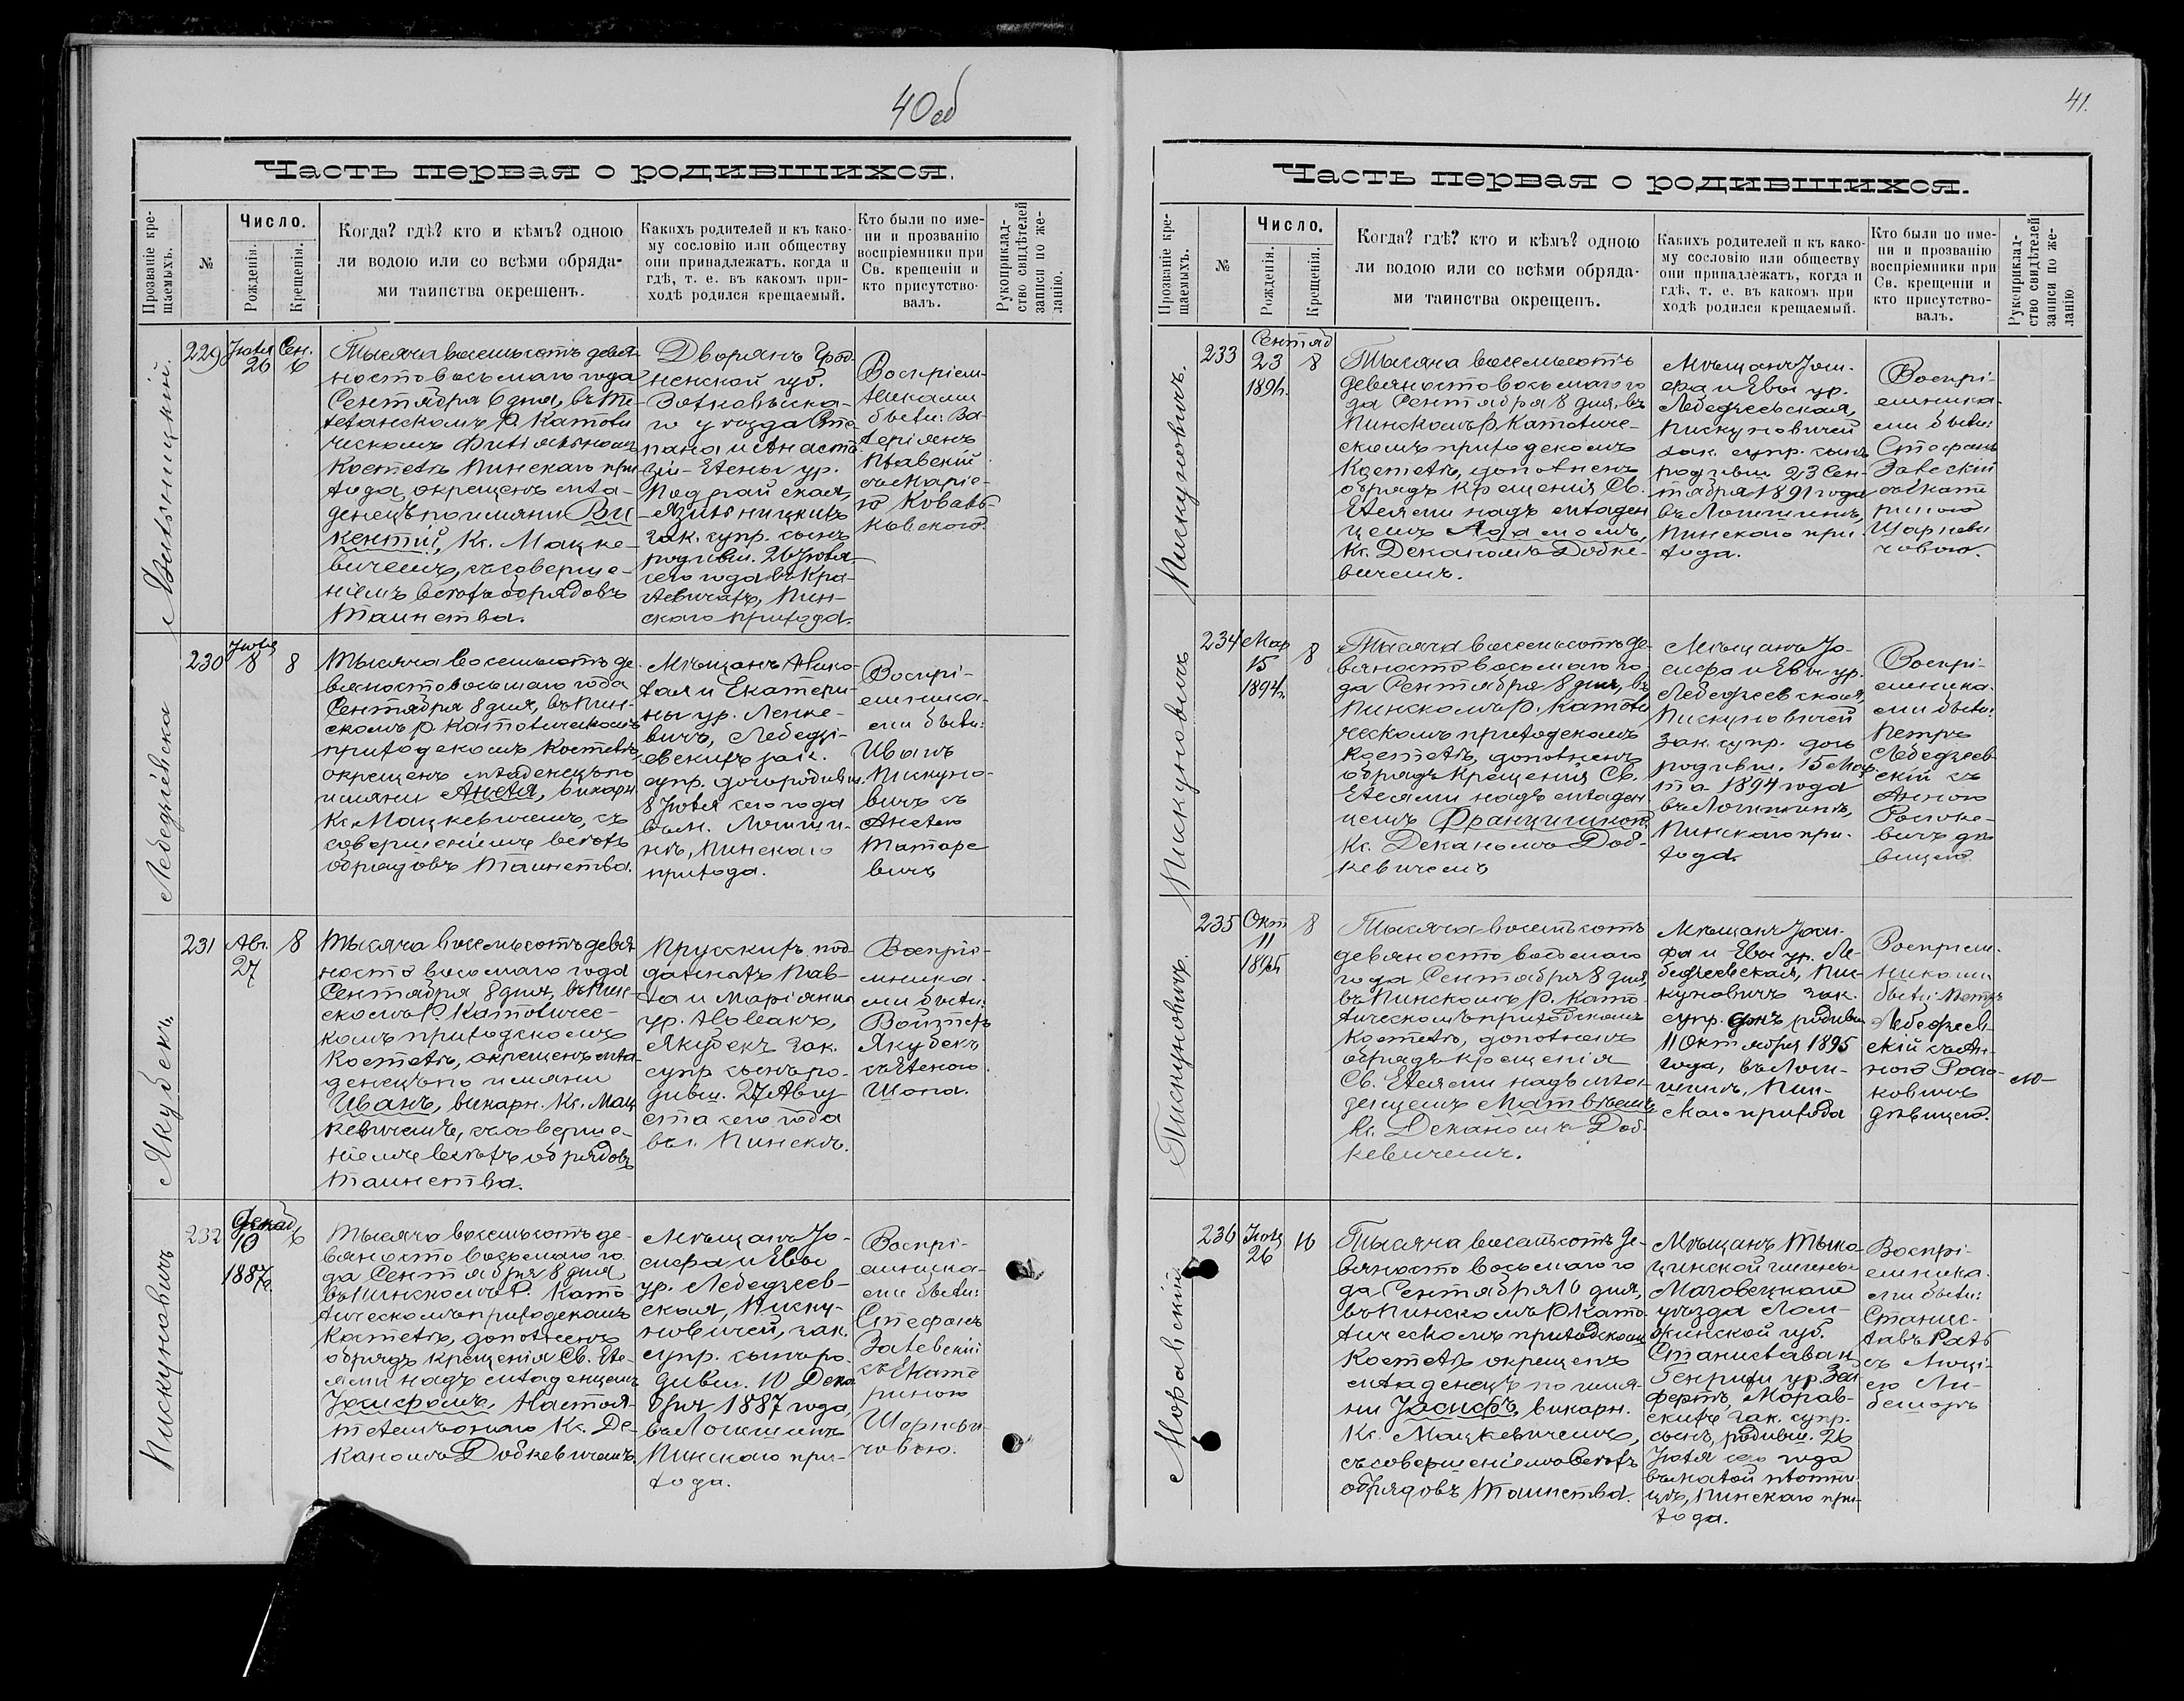 40 об
Часть первая о родившихся.
Прозваніе кре-
щаемыхъ.
№
Число.
Рожденія.
Крещенія.
Когда? гдѣ? кто и кѣмъ? одною
ли водою или со всѣми обряда-
ми таинства окрещенъ.
Какихъ родителей и къ како-
му сословію или обществу
они принадлежатъ. когда и
гдѣ, т. е. въ какомъ при-
ходѣ родился крещаемый.
Кто были по име-
ни и прозванію
воспріемники при
Св. крещеніи и
кто присутство-
валъ.
Рукоприклад-
ство свидѣтелей
записи по же-
ланію.
229
Іюля
26
Сен.
6
Тысяча восемьсотъ девя-
носто восьмаго года
Сентября 6 дня, въ
Р. Католи
ческомъ Филіяльномъ
Костелѣ Пинскаго при
хода, окрещенъ мла-
денецъ по имяни Ви
кентій, Кс. Мацке-
вичемъ, съ соверше-
ніемъ всѣхъ обрядовъ
Таинства.
Дворянъ Грод-
ненской губ.
Волковыска-
го уѣзда Сте
пана и Анаста
зіи-Елены ур.
зак. супр. сынъ
родивш. 26 Іюля
сего года въ Кра-
левичахъ, Пин-
скаго прихода.
Воспріем-
никами
были: Ва-
леріянъ
Плавскій
съ Маріе-
ю Коваль-
ковскою.
230
Іюля
8
8
Лебедзіевска
Тысяча восемьсотъ де
вяносто восьмаго года
Сентября 8 дня, въ Пин-
скомъ Р. Католическомъ
приходскомъ Костелѣ,
окрещенъ младенецъ по
имяни Анеля, викарн.
Кс. Мацкевичемъ, съ
совершеніемъ всѣхъ
обрядовъ Таинства.
Мѣщанъ Нико-
лая и Екатери-
ны ур. Ленке-
вичъ, Лебедзі-
евскихъ зак.
супр. дочь родивш.
8 Іюля сего года
въ м. Логиши-
нѣ, Пинскаго
прихода.
Воспрі-
емника-
ми были:
Иванъ
Пискуно-
вичъ съ
Анелею
Татаре
вичъ
231
Авг.
27
8
Якубекъ.
Тысяча восемьсотъ девя
носто восьмаго года
Сентября 8 дня, въ Пин-
скомъ Р. Католичес-
комъ приходскомъ
Костелѣ, окрещенъ мла-
денецъ по имяни
Иванъ, викарн. Кс. Мац
кевичемъ, съ соверше-
ніемъ всѣхъ обрядовъ
Таинства.
Прусскихъ под-
данныхъ Пав-
ла и Маріанны
ур. Новакъ,
Якубекъ зак.
супр. сынъ ро-
дивш. 27 Авгу
ста сего года
въ г. Пинскѣ.
Воспріе-
мника-
ми были:
Войтѣхъ
Якубекъ
съ Еленою
Шопа.
232
Декаб
10
1887 г.
8
Пискуновичъ
Тысяча восемьсотъ де-
вяносто восьмаго го-
да Сентября 8 дня
въ Пинскомъ Р. Като
лическомъ приходскомъ
Костелѣ, дополненъ
обрядъ крещенія Св. Еле-
ями надъ младенцемъ
Іосифомъ, Настоя-
телемъ онаго Кс. Де-
каномъ Добкевичемъ.
Мѣщанъ Іо-
сифа и Евы
ур. Лебедзеев-
ская, Писку-
новичей, зак.
супр. сынъ ро-
дивш. 10 Дека
бря 1887 года,
въ Логишинѣ
Пинскаго при-
хода.
Воспрі-
емника-
ми были:
Стефанъ
Залевскій
съ Екате
риною
Шарневи
човою.
41.
Часть первая о родившихся.
Прозваніе кре-
щаемыхъ.
№
Число.
Рожденія.
Крещенія.
Когда? гдѣ? кто и кѣмъ? одною
ли водою или со всѣми обряда-
ми таинства окрещенъ.
Какихъ родителей и къ како-
му сословію или обществу
они принадлежатъ, когда и
гдѣ, т. е. въ какомъ при
ходѣ родился крещаемый.
Кто были по име-
ни и прозванію
воспріемники при
Св. крещеніи и
кто присутство-
валъ.
Рукоприклад-
ство свидѣтелей
записи по же-
ланію
233
Сентяб
23
8
Пискуновичъ.
Тысяча восемьсотъ
девяносто восьмаго го
да Сентября 8 дня, въ
Пинскомъ Р. Католиче-
скомъ приходскомъ
Костелѣ, дополненъ
обрядъ крещенія Св.
Елеями надъ младен
цемъ Адамомъ,
Кс. Деканомъ Добке-
вичемъ.
Мѣщанъ Іоси-
фа и Евы ур.
Лебедзеевская,
Пискуновичей
зак. супр. сынъ
родивш. 23 Сен-
тября 1891 года
въ Логишинѣ,
Пинскаго при-
хода.
Воспрі-
емника-
ми были:
Стефанъ
Залескій
съ Екате
риною
Шарневи
човою.
234
Мар
15
1894 г.
8
Пискуновичъ
Тысяча восемьсотъ де-
вяносто восьмаго го-
да Сентября 8 дня, въ
Пинскомъ Р. Католи
ческомъ приходскомъ
Костелѣ, дополненъ
обрядъ крещенія Св.
Елеями надъ младен
цемъ Францишкою
Кс. Деканомъ Доб-
кевичемъ
Мѣщанъ Іо-
сифа и Евы ур.
Лебедзеевская,
Пискуновичей
зак. супр. дочь
родивш. 15 Мар
та 1894 года
въ Логишинѣ,
Пинскаго при-
хода.
Воспрі-
емника-
ми были:
Петръ
Лебедзеев-
скій съ
Анною
вичъ дѣ
вицею
235
Окт
11
1895
8
Пискуновичъ.
Тысяча восемьсотъ
девяносто восьмаго
года Сентября 8 дня,
въ Пинскомъ Р. Като
лическомъ приходскомъ
Костелѣ, дополненъ
обрядъ крещенія
Св. Елеями надъ мла-
денцемъ Матвѣемъ
Кс. Деканомъ Доб-
кевичемъ.
Мѣщанъ Іоси-
фа и Евы ур. Ле-
бедзеевская, Пис-
куновичъ зак.
супр. сынъ родивш
11 Октября 1895
года, въ Логи-
шинѣ, Пин-
скаго прихода
Воспріем-
никами
были: Петръ
Лебедзеев-
скій съ Ан-
ною
ковичъ
дѣвицею.
236
Іюля
26
10
Моравскій.
Тысяча восемьсотъ де-
вяносто восьмаго го
да Сентября 10 дня,
въ Пинскомъ Р. Като-
лическомъ приходскомъ
Костелѣ окрещенъ
младенецъ по имя-
ни Іосифъ, викарн.
Кс. Мацкевичемъ,
съ совершеніемъ всѣхъ
обрядовъ Таинства.
Мѣщанъ Тыко-
цинской гмины
Мазовецкаго
уѣзда Лом-
жинской губ.
Станислава и
Генрихи ур. Зей
фертъ, Морав-
скихъ зак. супр.
сынъ, родивш. 26
Іюля сего года
въ малой плотни-
цѣ, Пинскаго при-
хода.
Воспрі-
емника-
ми были:
Станис-
лавъ
съ Люці-
ею